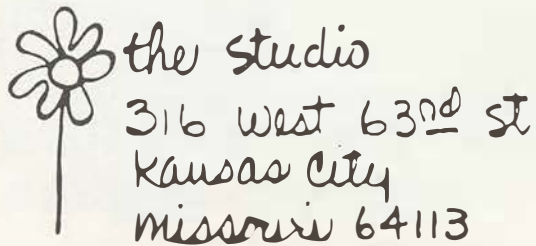 the studio
316 west 63nd st
kansas city
missouri 64113